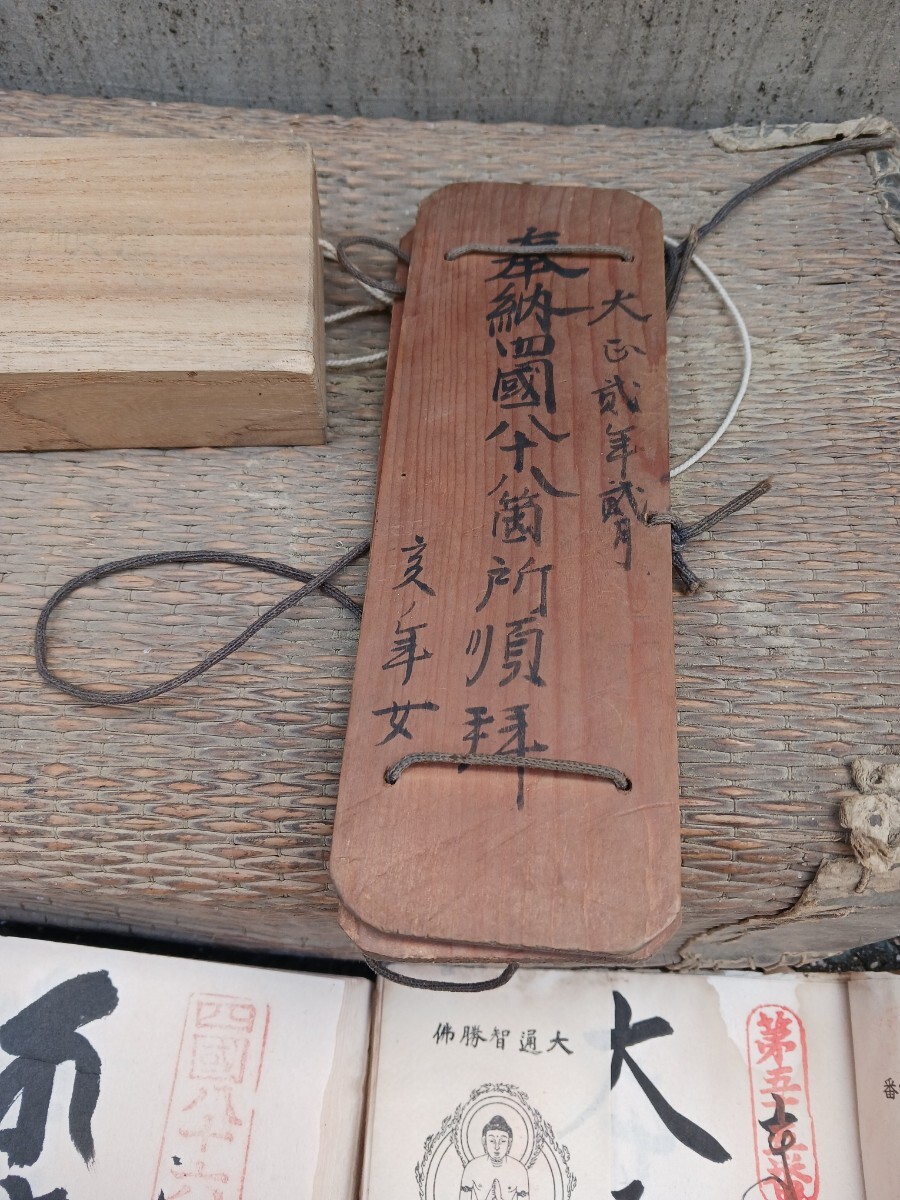 大正貳年貳月
奉納四國八十八箇所順拜
亥ノ年女
大通智勝佛
大
第五十五番
四國八十六
番